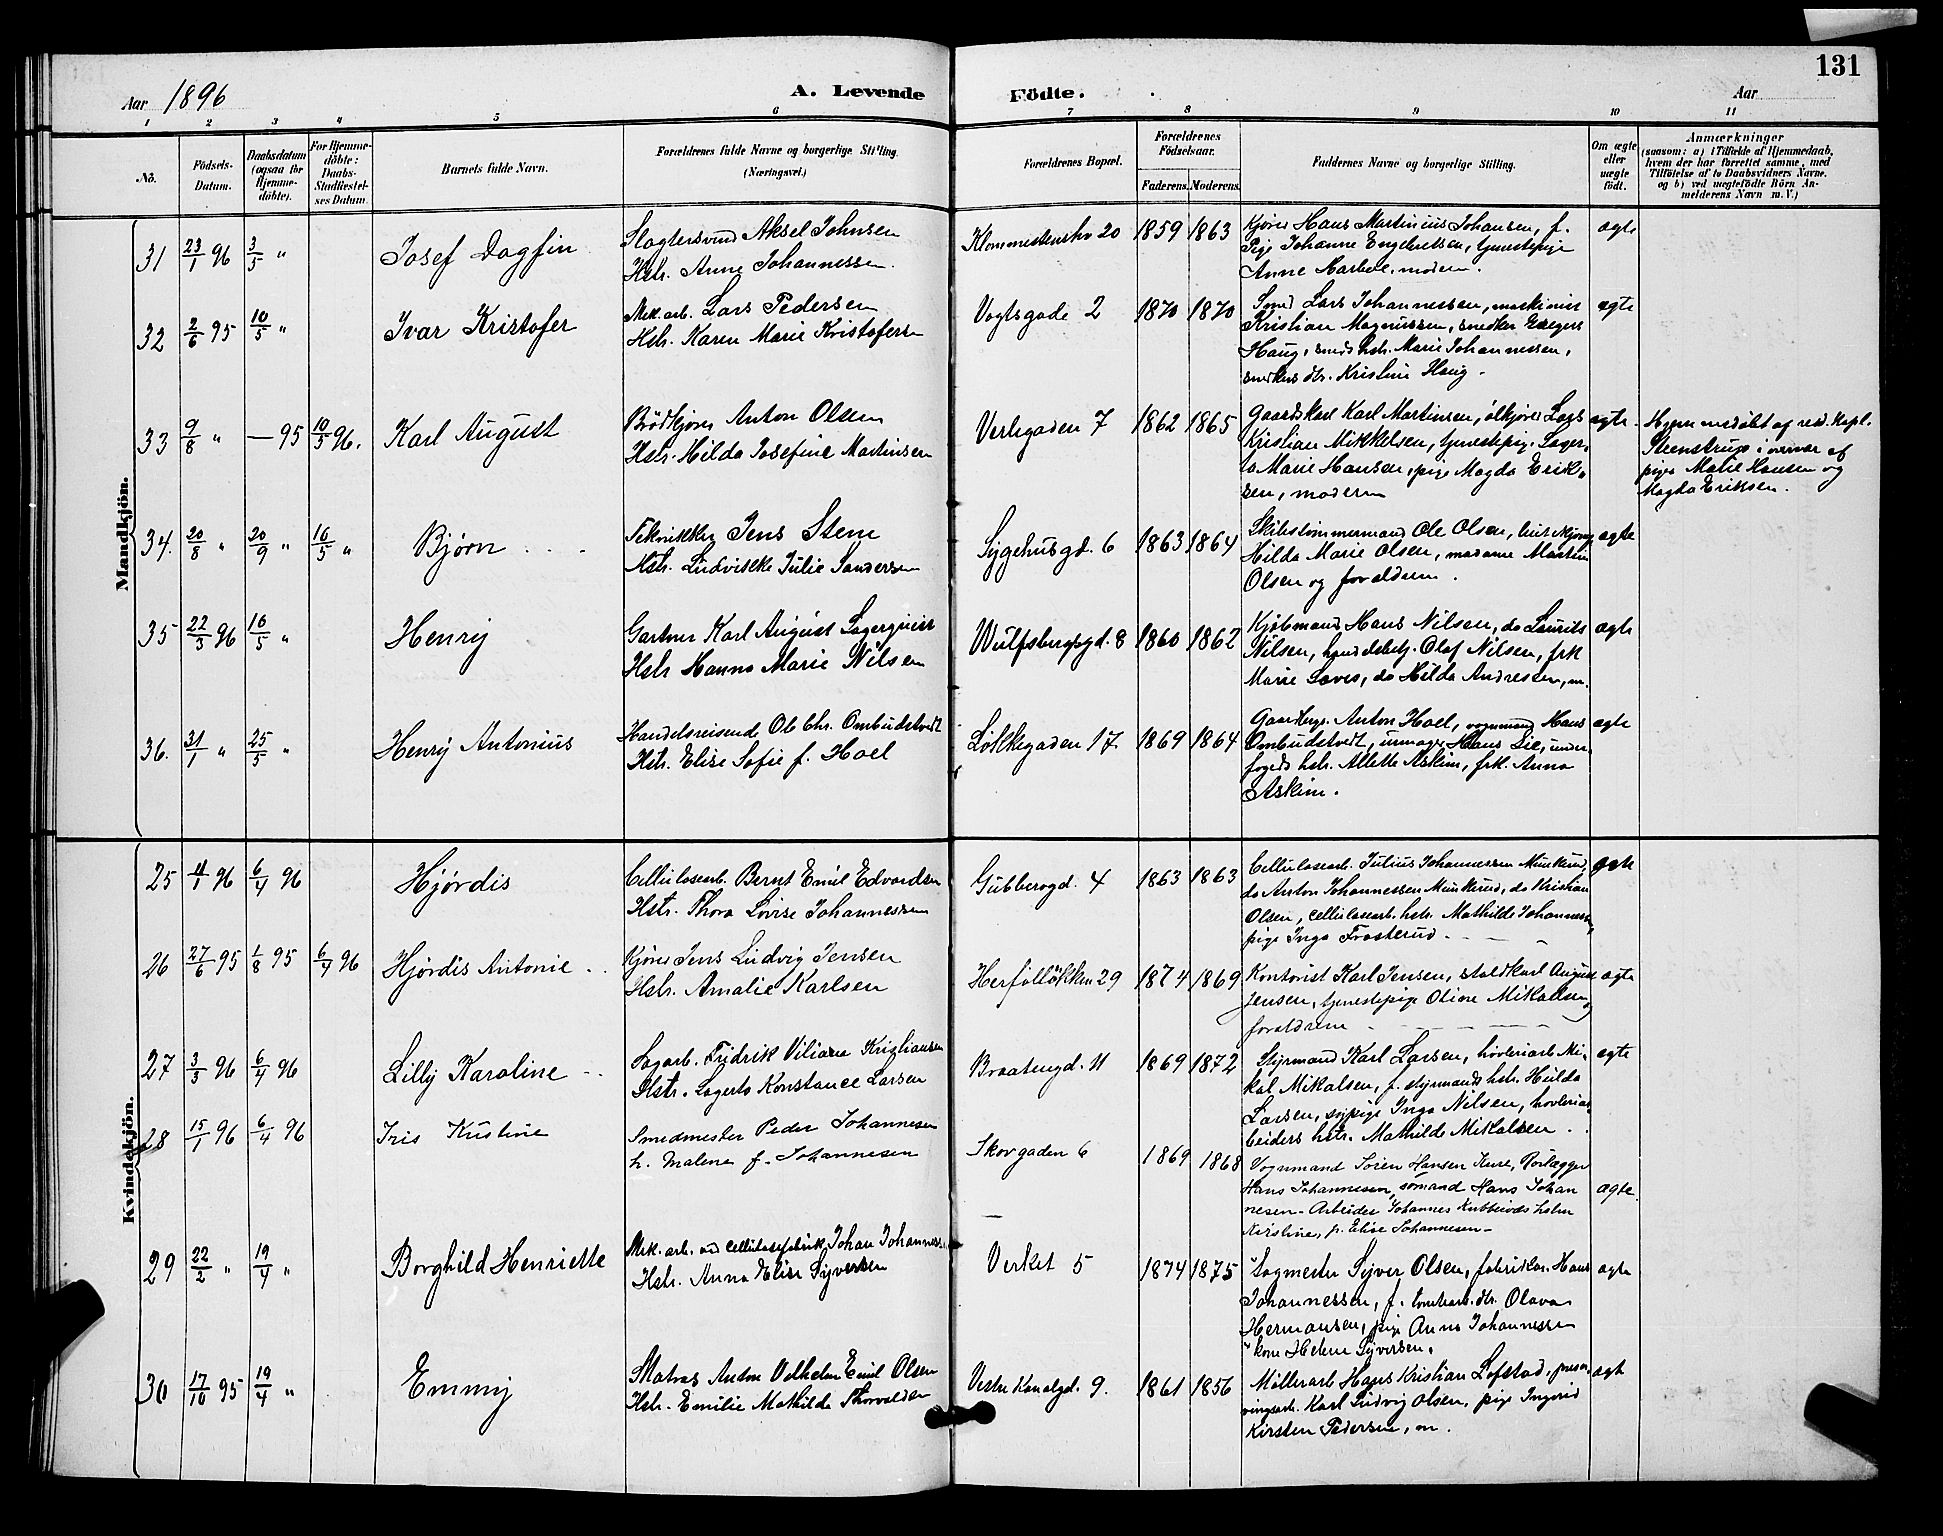 131
Aar 1896
A. Levende
Födte.
Aar
1 2 3 4 5 6 7 8 9 10 11
No.
Födsels-
Datum.
Daabsdatum
(ogsaa for
Hjemme-
döbte).
For Hjemme-
döbte:
Daabs-
Stadfæstel-
ses Datum.
Barnets fulde Navn.
Forældrenes fulde Navne og borgerlige Stilling.
(Næringsvei.)
Forældrenes Bopæl.
Forældrenes
Födselsaar.
Faderens. Moderens.
Faddernes Navne og borgerlige Stilling.
Om ægte
eller
uægte
födt.
Anmærkninger
(saasom: a) i Tilfælde af Hjemmedaab,
hvem der har forrettet samme, med
Tilföielse af to Daabsvidners Navne.
og b) ved uægtefödte Börn An-
melderens Navn m. V.)
Mandkjön.
31 23/1 96 3/5 "
Josef Dagfin
Slagtersvend Aksel Johnsen
Hstr. Anne Johannessen.
20 1859 1863
Kjører Hans Martinius Johansen, f.
Pige Johanne Engebretsen, tjenestepige
Anne, moderen.
ægte
32 2/6 95 10/5 "
Ivar Kristofer
Mek. arb. Lars Pedersen
Hstr. Karen Marie Kristofersen
Vogtsgade 2 1870 1870
Smed Lars Johannessen, maskinist
Kristian Magnussen, snedker
Haug, smeds hstr. Marie Johannessen,
snedkers dtr. Kristine Haug.
ægte
33 9/8 " — 95 10/5 96.
Karl August
Brødkjører Anton Olsen
Hstr. Hilda Josefine Martinsen
Verlegaden 7 1862 1865
Gaardskarl Karl Martinsen, ølkjører Lars
Kristian Mikkelsen, tjenestepige Lager-
ta Marie Hansen, pige Magda Erik-
sen, moderen
ægte
Hjemmedøbt af res. kapl.
Steenstrup i overvær af
pige Marie Hansen og
Magda Eriksen.
34. 20/8 " 20/9 " 16/5 "
Bjørn
Tekniker Jens Stene
Hstr. Ludvikke Julie Sandersen
Sygehusgd. 6 1863 1864
Skibstømmermand Ole Olsen,
Hilda Marie Olsen, madame Martin
Olsen og forældrene.
ægte
35 22/3 96 16/5 "
Henry
Gartner Karl August Lagerquist
Hstr Hanna Marie Nilsen
Wulfsbergsgd. 8 1860 1862
Kjøbmand Hans Nilsen, do Laurits
Nilsen, handelsbetj. Olaf Nilsen, frk
Marie, do Hilda Andresen, m.
ægte
36. 31/1 " 25/5 "
Henry Antonius
Handelsreisende Ole Chr. Ombudstvedt
Hstr. Elise Sofie f. Hoel
Løkkegaden 17. 1869 1864
Gaardbrgr. Anton Hoel, vognmand Hans
Ombudstvedt, urmager Hans Lie, under-
fogeds hstr. Alette Askim, frk. Anna
Askim.
ægte
Kvindekjön.
25 4/1 96 6/4 96
Hjørdis
Cellulosearb. Bernt Emil Edvardsen
Hstr. Thora Lovise Johannessen
Gubberogd. 4 1863 1863
Cellulosearb. Julius Johannessen Munkerud,
do Anton Johannessen Munkerud, do Kristian
Olsen, cellulosearb. hstr. Mathilde Johannessen,
pige Inga Frosterud.
ægte
26 27/6 95 1/8 95 6/4 96
Hjørdis Antonie
Kjører Jens Ludvig Jensen
Hstr. Amalie Karlsen
Herføllökken 29 1874 1869
Kontorist Karl Jensen, staldkarl August
Jensen, tjenestepige Oline Mikalsen,
forældrene
ægte
27 3/3 96 6/4 96
Lilly Karoline
Sagarb. Fridrik Viliam Kristiansen
Hstr. Lagerta Konstance Larsen
Braatengd. 11 1869 1872
Styrmand Karl Larsen, høvleriarb Mi-
kal Mikalsen, f. styrmands hstr. Hulda
Larsen, sypige Inga Nilsen, høvleriar-
beiders hstr. Mathilde Mikalsen.
ægte
28 15/1 96 6/4 96
Iris Kristine
Smedmester Peder Johannesen
h. Malena f. Johannesen
Skovgaden 6 1869 1868
Vognmand Sören Hansen Kure, Rörlægger
Hans Johannesen, sömand Hans Johan
nesen - Arbeider Johannes
Kirstine, p. Elise Johannesen -
ægte.
29 22/2 " 19/4 "
Borghild Henriette
Mek. arb. ved cellulosefabrik Johan Johannessen
Hstr. Anna Elise Syversen
Verket 5 1874 1875
Sagmester Syver Olsen, fabrikar. Hans
Johannessen, f. dtr. Olava
Hermansen, pige Anna Johannessen
kone Helene Syversen.
ægte
30 17/10 95 19/4 "
Emmy
Matros Anton Vilhelm Emil Olsen
Hstr. Emilie Mathilda Thorvaldsen
Vestre Kanalgd. 9. 1861 1856
Møllerarb Hans Kristian Lofstad, preser-
vingsarb. Karl Ludvig Olsen, pige Ingrid
Kirsten Pedersen, m.
ægte